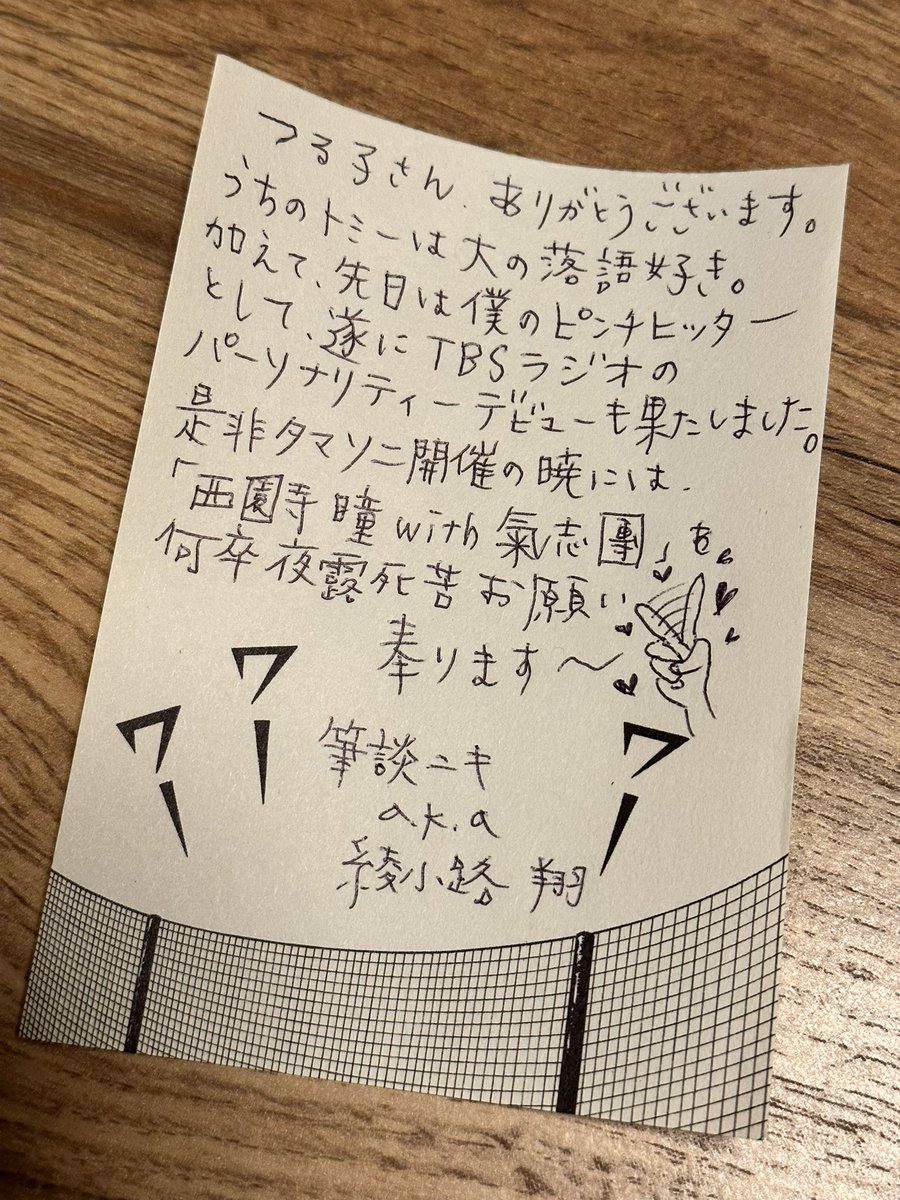 つる子さん、ありがとうございます。
うちのトミーは大の落語好き。
加えて、先日は僕のピンチヒッター
として、遂にTBSラジオの
パーソナリティーデビューも果たしました。
是非タマソニ開催の暁には、
「西園寺瞳with氣志團」を
何卒夜露死苦お願い
奉ります〜
ワー
ワー
ワー
筆談ニキ
a.k.a
綾小路 翔